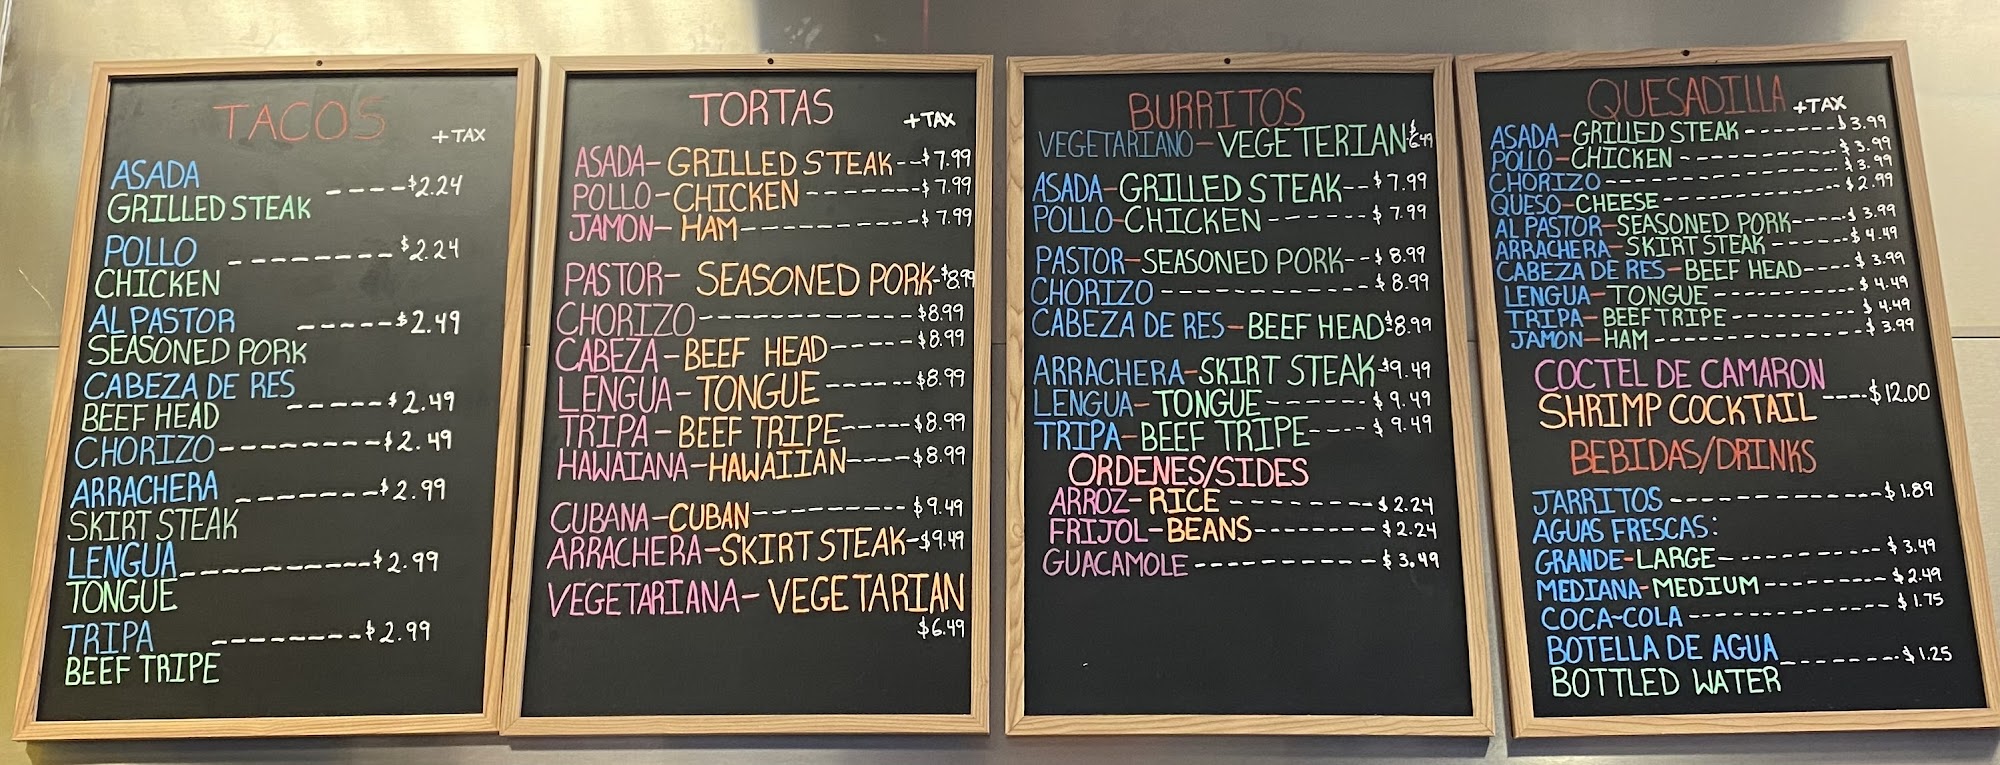 TACOS
+TAX
ASADA
GRILLED STEAK ----$2.24
POLLO --------$2.24
CHICKEN
AL PASTOR -----$2.49
SEASONED PORK
CABEZA DE RES
BEEF HEAD -----$2.49
CHORIZO--------$2.49
ARRACHERA -------$2.99
SKIRT STEAK
LENGUA----------$2.99
TONGUE
TRIPA --------$2.99
BEEF TRIPE
TORTAS
+TAX
ASADA-GRILLED STEAK--$7.99
POLLO-CHICKEN -------$7.99
JAMON-HAM----------$7.99
PASTOR- SEASONED PORK-$8.99
CHORIZO-------------$8.99
CABEZA-BEEF HEAD-----$8.99
LENGUA-TONGUE ------$8.99
TRIPA-BEEF TRIPE----$8.99
HAWAIANA-HAWAIIAN----$8.99
CUBANA-CUBAN----------$9.49
ARRACHERA-SKIRT STEAK-$9.49
VEGETARIANA- VEGETARIAN
$6.49
BURRITOS
VEGETARIANO-VEGETERIAN $6.49
ASADA-GRILLED STEAK--$7.99
POLLO-CHICKEN ------$7.99
PASTOR-SEASONED PORK--$8.99
CHORIZO ------------$8.99
CABEZA DE RES-BEEF HEAD$8.99
ARRACHERA-SKIRT STEAK$9.49
LENGUA-TONGUE-------$9.49
TRIPA-BEEF TRIPE----$9.49
ORDENES/SIDES
ARROZ-RICE --------$2.24
FRIJOL-BEANS-------$2.24
GUACAMOLE -----------$3.49
QUESADILLA
+TAX
ASADA-GRILLED STEAK-------$3.99
POLLO-CHICKEN ------------$3.99
CHORIZO------------------$3.99
QUESO-CHEESE-------------$2.99
AL PASTOR-SEASONED PORK----$3.99
ARRACHERA-SKIRT STEAK ------$4.49
CABEZA DE RES-BEEF HEAD----$3.99
LENGUA-TONGUE------------$4.49
TRIPA-BEEF TRIPE-----------$4.49
JAMON-HAM----------------$3.99
COCTEL DE CAMARON
SHRIMP COCKTAIL ----$12.00
BEBIDAS/DRINKS
JARRITOS -------------$1.89
AGUAS FRESCAS:
GRANDE-LARGE-----------$3.49
MEDIANA-MEDIUM---------$2.49
COCA-COLA -------------$1.75
BOTELLA DE AGUA--------$1.25
BOTTLED WATER